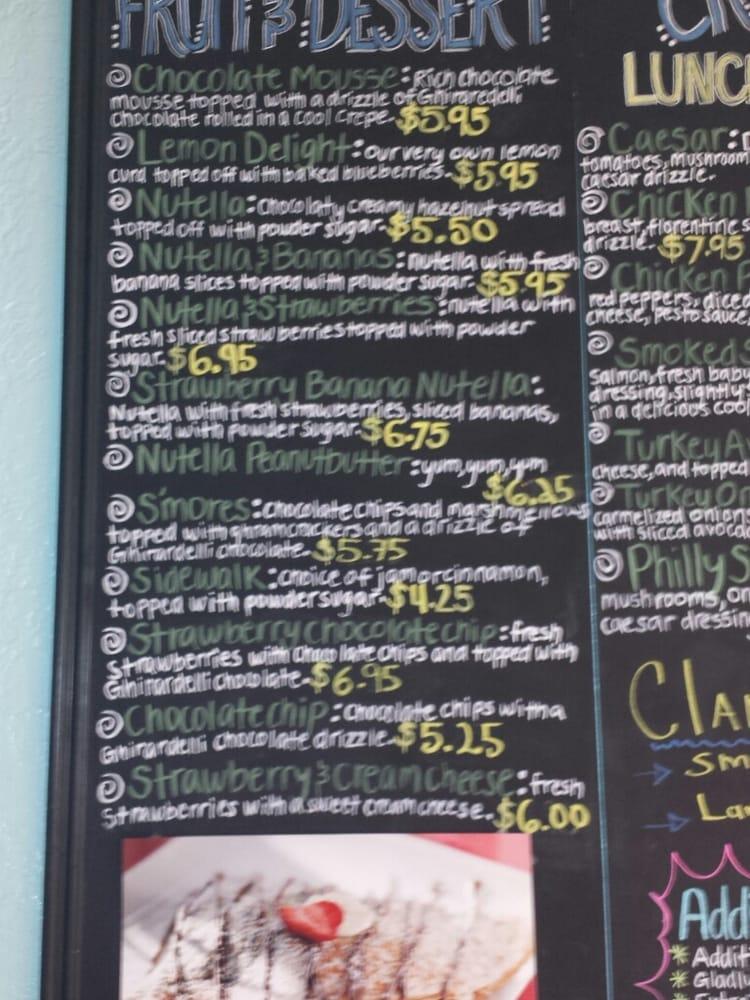 FRUIT & DESSERT
Chocolate Mousse: Rich chocolate
mousse topped with a drizzle of Ghiraredelli
chocolate rolled in a cool crepe. $5.95
Lemon Delight: our very own lemon
curd topped off with baked blueberries. $5.95
Nutella: Chocolaty creamy hazelnut spread
topped off with powder sugar. $5.50
Nutella & Bananas: nutella with fresh
banana slices topped with powder sugar. $5.95
Nutella & Strawberries: nutella with
fresh sliced strawberries topped with powder
sugar. $6.95
Strawberry Banana Nutella:
Nutella with fresh strawberries, sliced bananas,
topped with powder sugar. $6.75
Nutella Peanutbutter: yum, yum, yum
$6.25
S'mores: chocolate chips and marshmellows
topped with ghramcrackers and a drizzle of
Ghirardelli chocolate. $5.75
Sidewalk: choice of jam or cinnamon,
topped with powder sugar. $4.25
Strawberry chocolate chip: fresh
Strawberries with chocolate chips and topped with
Ghirardelli chocolate. $6.95
Chocolate chip: chocolate chips with a
Ghirardelli chocolate drizzle. $5.25
Strawberry & Cream cheese: fresh
Strawberries with a sweet cream cheese. $6.00
LUNC
Caesar:
tomatoes, mushroom
caesar drizzle.
Chicken
breast, florentine s
drizzle. $7.95
Chicken
red peppers, diced
cheese, pesto sauce
Smoked S
Salmon, fresh baby
dressing, slightly
in a delicious cool
Turkey A
cheese, and topped
Turkey On
carmelized onion
with sliced avocad
Philly S
mushrooms, on
caesar dressin
Cla
Sm
La
Add
Additi
Gladly